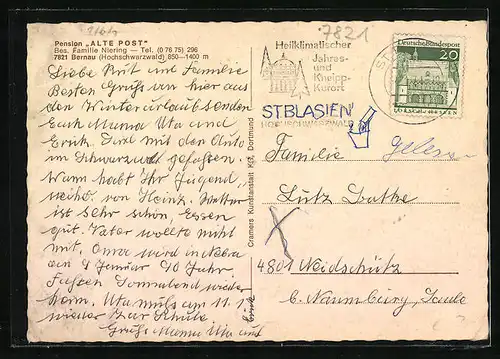 7821
Pension „ALTE POST"
Bes. Familie Niering — Tel. (0 76 75) 296
7821 Bernau (Hochschwarzwald) 850—1400 m
Liebe Rut und Familie
Besten Gruß von hier aus
den Winterurlaub senden
Euch Mama Uta und
Erik. Sind mit den Auto
im Schwarzwald gefahren.
Wann habt Ihr Jugend
weihe. von Heinz. Wetter
ist sehr schön, Essen
gut. Vater wollte nicht
mit. Oma wird in Nebra
am 9 Januar 90 Jahr.
Fahren Sonnabend wieder
heim. Uta muß am 11.1
wieder zur Schule
Gruß Mama Uta und
Erik
Cramers Kunstanstalt KG, Dortmund
Heilklimatischer
Jahres-
und
Kneipp-
Kurort
ST BLASIEN
HOCHSCHWARZWALD
Deutsche Bundespost
20
LORSCH/HESSEN
Familie
Gelesen
Lutz Bathe
4801 Neidschütz
b. Naumburg, Saale